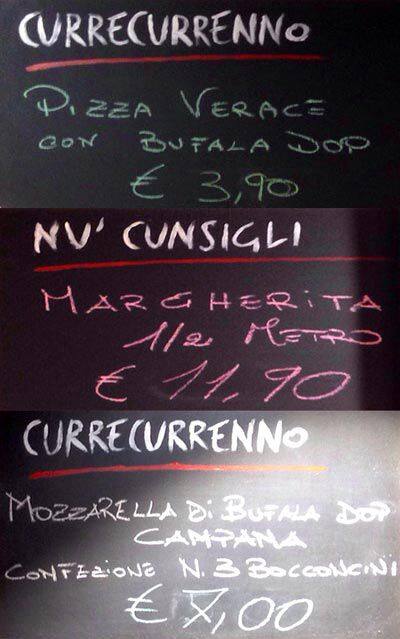 CURRECURRENNO
PIZZA VERACE
CON BUFALA DOP
€ 3,90
NU' CUNSIGLI
MARGHERITA
1/2 METRO
€ 11,90
CURRECURRENNO
MOZZARELLA DI BUFALA DOP
CAMPANA
CONFEZIONE N. 3 BOCCONCINI
€ X,00